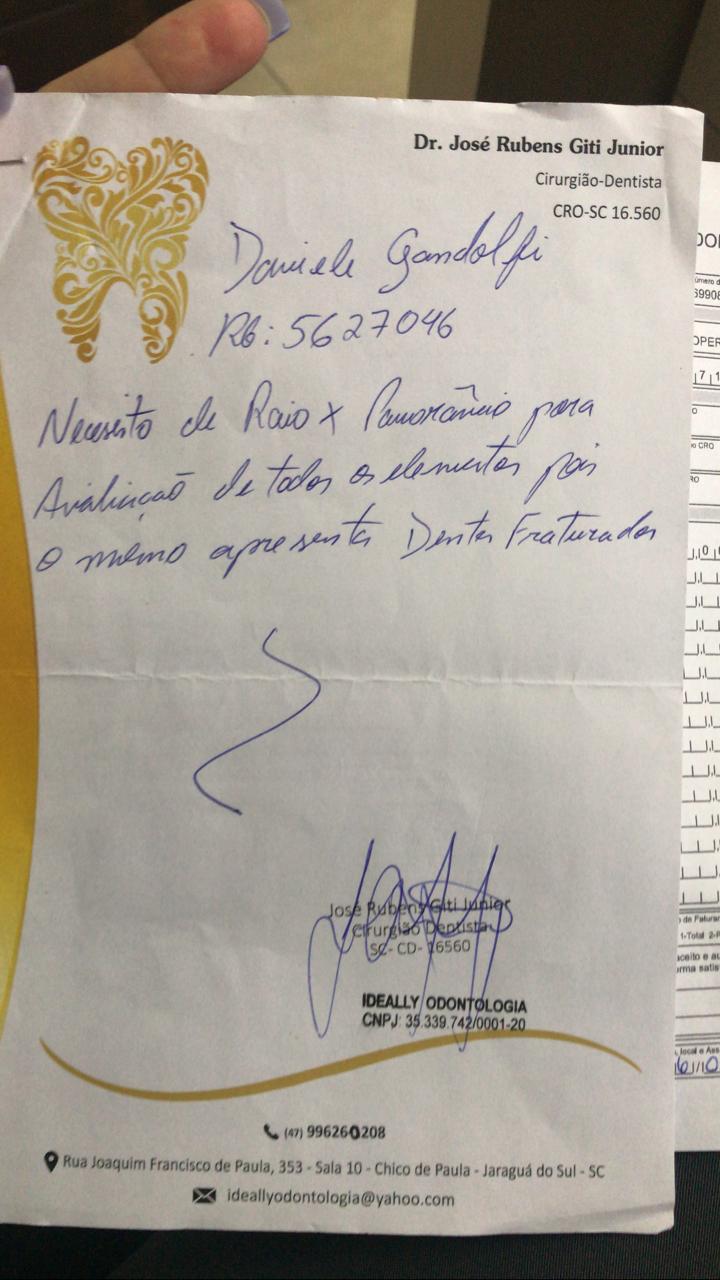 Dr. José Rubens Giti Junior
Cirurgião-Dentista
CRO-SC 16.560
Daniele Gandolfi
RG: 5627046
Necessito de Raio X Panorâmico para
Avaliação de todos os elementos pois
o mesmo apresenta Dentes Fraturados
José Rubens Giti Junior
Cirurgião Dentista
SC- CD- 16560
IDEALLY ODONTOLOGIA
CNPJ: 35.339.742/0001-20
(47) 996260208
Rua Joaquim Francisco de Paula, 353 - Sala 10 - Chico de Paula - Jaraguá do Sul - SC
ideallyodontologia@yahoo.com